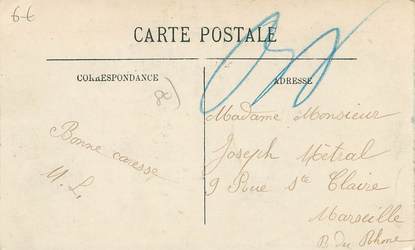 6€
CARTE POSTALE
CORRESPONDANCE
ADRESSE
Bonne caresse
M. L.
Madame Monsieur
Joseph Métral
9 Rue Ste Claire
Marseille
B. du Rhone